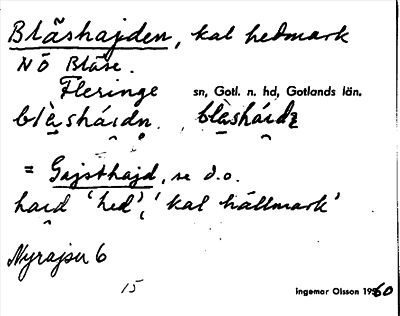 Blåshajden, kal hedmark
NÖ Bläse.
Fleringe sn, Gotl. n. hd, Gotlands län.
blàsháidn. blàsháidz
= Gajsthajd, se d.o.
haid 'hed', 'kal hällmark'
Nyrajsu 6
15
Ingemar Olsson 1960